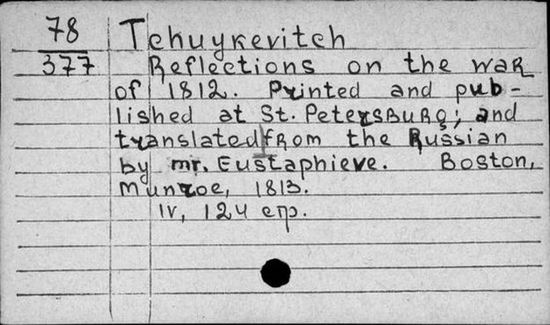 78
377
Tchuykevitch
Reflections on the war
of 1812. Printed and pub-
lished at St. Petersburg; and
translated from the Russian
by mr. Eustaphieve. Boston,
Munroe, 1813.
IV, 124 стр.